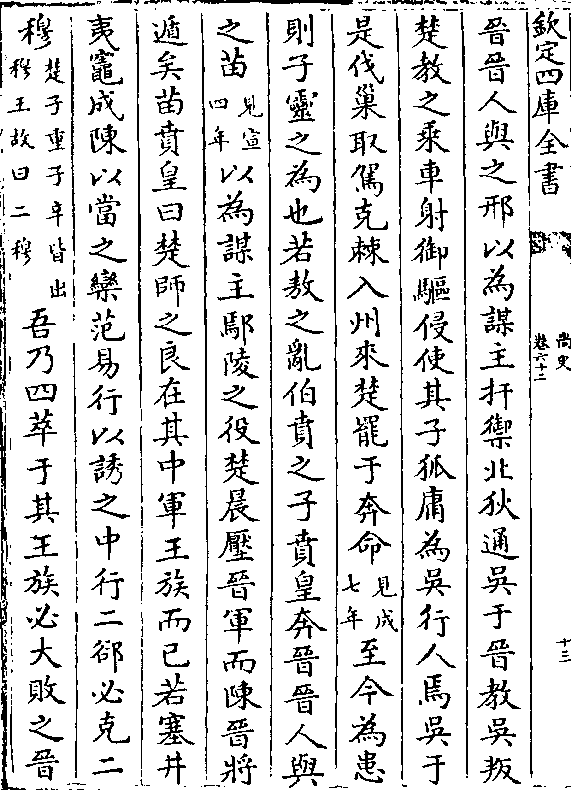 欽定四庫全書
尚史
卷六十二
十三
晉晉人與之邢以為謀主扞禦北狄通吳于晉教吳叛
楚教之乘車射御驅侵使其子狐庸為吳行人焉吳于
是伐巢取駕克棘入州來楚罷于奔命見成七年至今為患
則子靈之為也若敖之亂伯賁之子賁皇奔晉晉人與
之苗見宣四年以為謀主鄢陵之役楚晨壓晉軍而陳晉將
遁矣苗賁皇曰楚師之良在其中軍王族而已若塞井
夷竈成陳以當之欒范易行以誘之中行二郤必克二
穆楚子重子辛皆出穆王故曰二穆吾乃四萃于其王族必大敗之晉